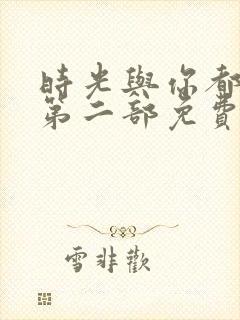 時光與你都
第二部免費
雪非歡